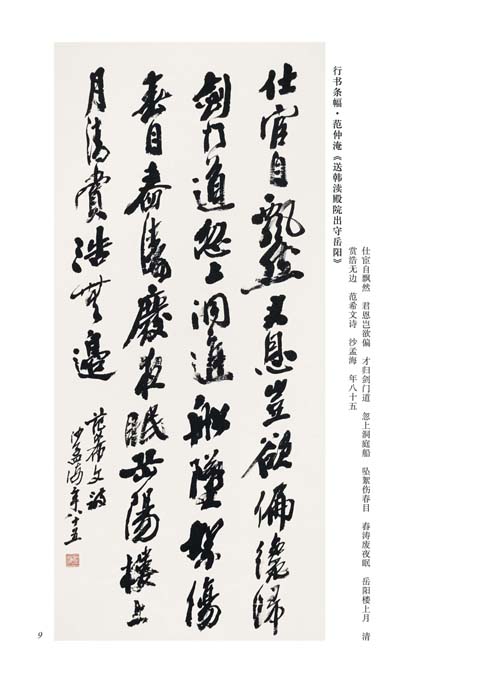 行书条幅·范仲淹《送韩渎殿院出守岳阳》
仕宦自飘然　君恩岂欲偏　才归剑门道　忽上洞庭船　坠絮伤春目　春涛废夜眠　岳阳楼上月　清
赏浩无边　范希文诗　沙孟海　年八十五
仕宦自飄然君恩豈欲偏纔歸
劍門道忽上洞庭船墮絮傷
春目春濤廢夜眠岳陽樓上
月清賞浩無邊
范希文詩
沙孟海年八十五
9